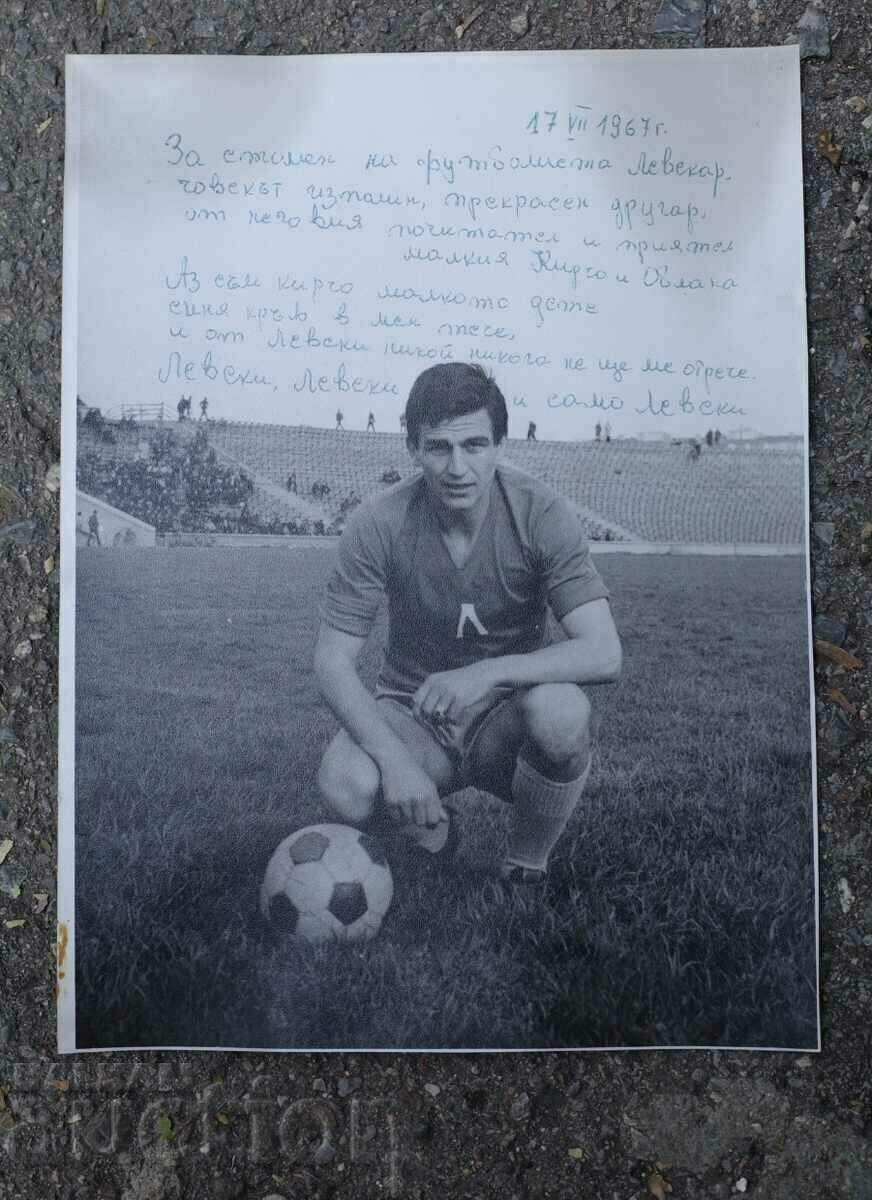 17 VII 1967 г.
За спомен на футболиста Левскар,
човекът изпълин, прекрасен другар,
от неговия почитател и приятел
малкия Кирчо и Облака
Аз съм кирчо малкото дете
синя кръв в мен тече,
и от Левски никой никога не ще ме отрече.
Левски, Левски и само Левски
Л